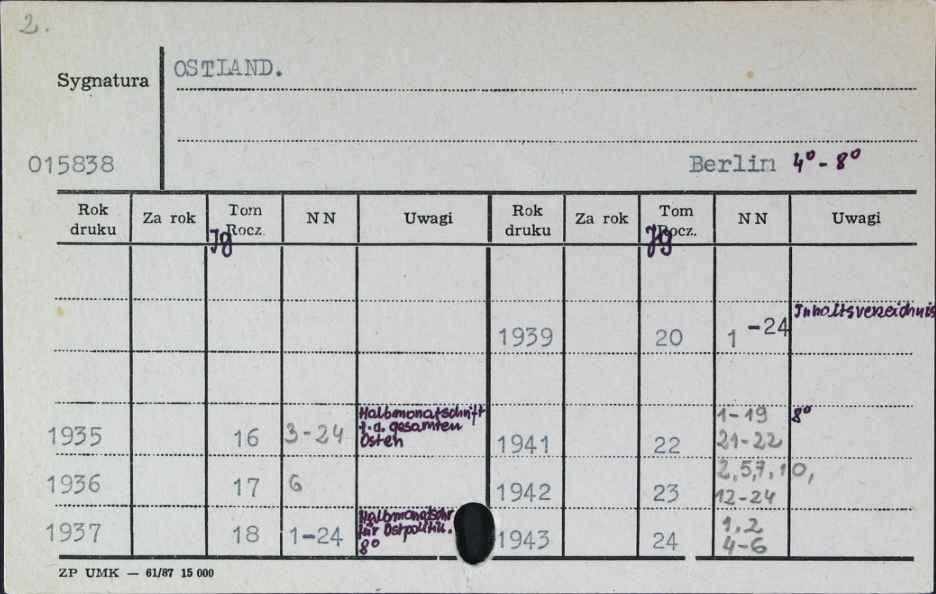 2.
Sygnatura
OSTLAND.
015838
Berlin 4° - 8°
Rok druku
Za rok
Tom Rocz.
Jg
NN
Uwagi
Rok druku
Za rok
Tom Rocz.
Jg
NN
Uwagi
1939 20 1 -24 Inhaltsverzeichnis
1935 16 3-24 Halbmonatschrift
f.d. gesamten
Osten
1941 22 1-19
21-22
8°
1936 17 6
1942 23 2,5,7,10,
12-24
1937 18 1-24 Halbmonatschr
für Ostpolitik.
8°
1943 24 1,2
4-6
ZP UMK — 61/87 15 000